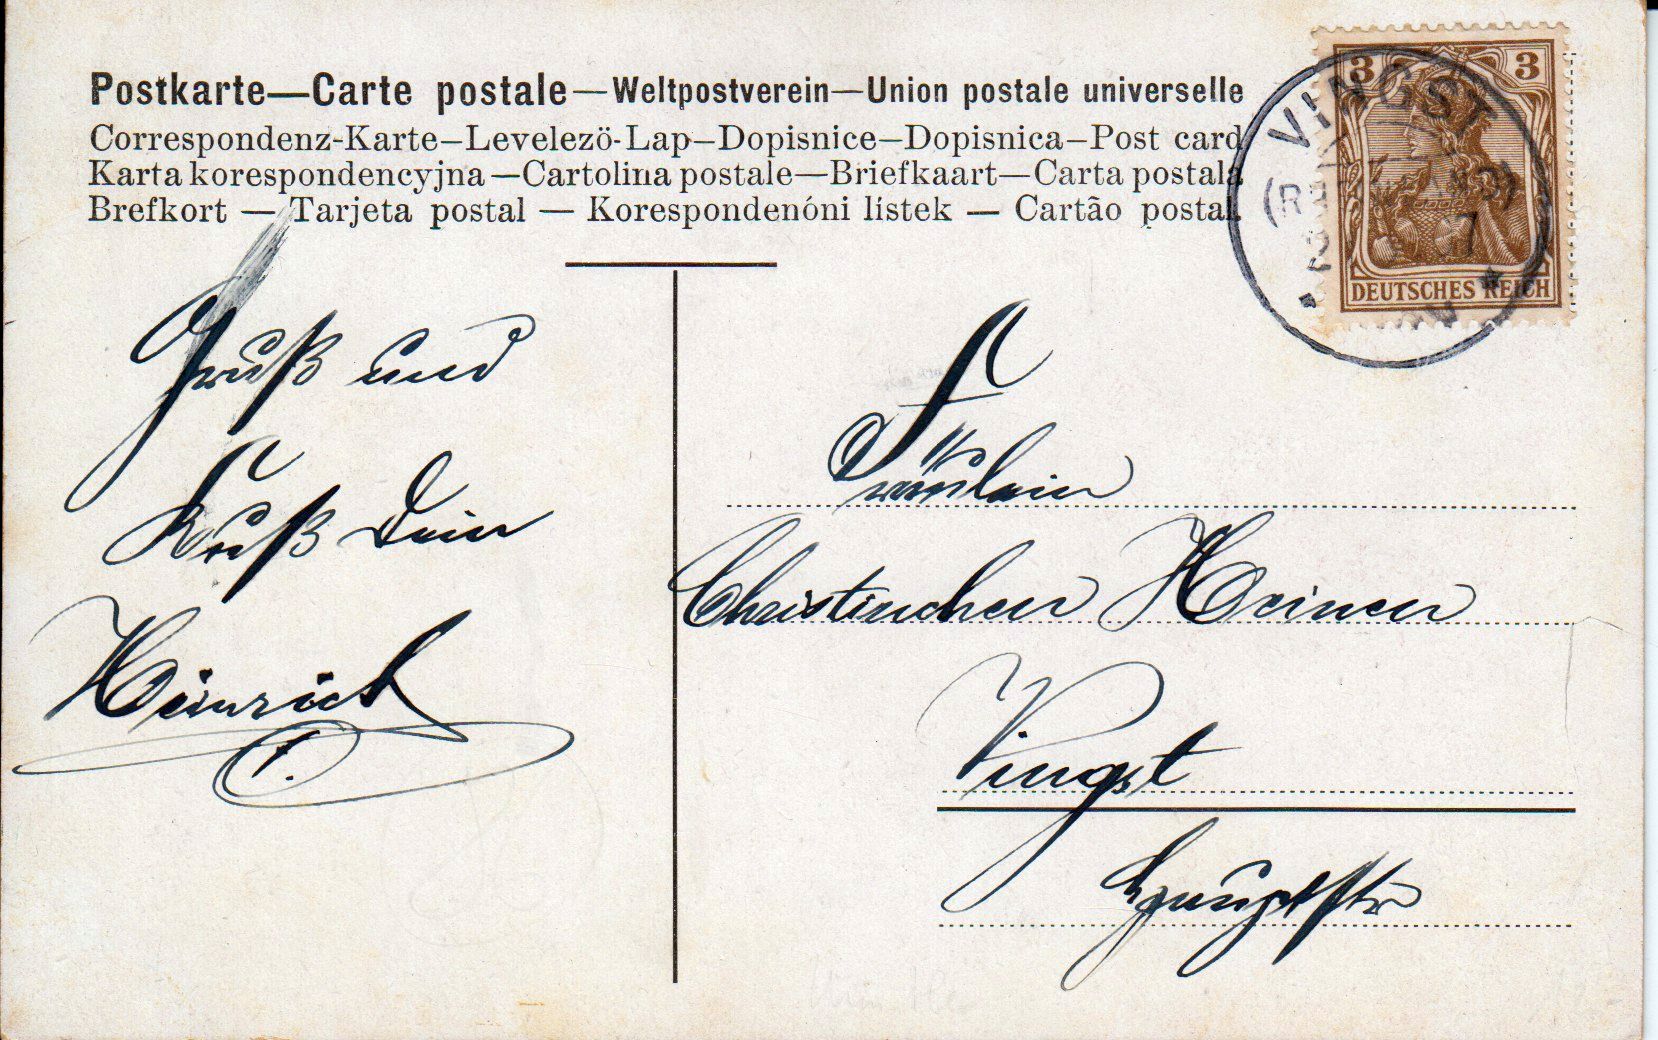 Postkarte—Carte postale—Weltpostverein—Union postale universelle
Correspondenz-Karte—Levelező-Lap—Dopisnice—Dopisnica—Post card
Karta korespondencyjna—Cartolina postale—Briefkaart—Carta postala
Brefkort — Tarjeta postal — Korespondenóni lístek — Cartão postal.
3 3
DEUTSCHES REICH
VINGST
Gruß und
Kuß Dein
Heinrich
Fräulein
Christinchen Heinen
Vingst
Hauptstr